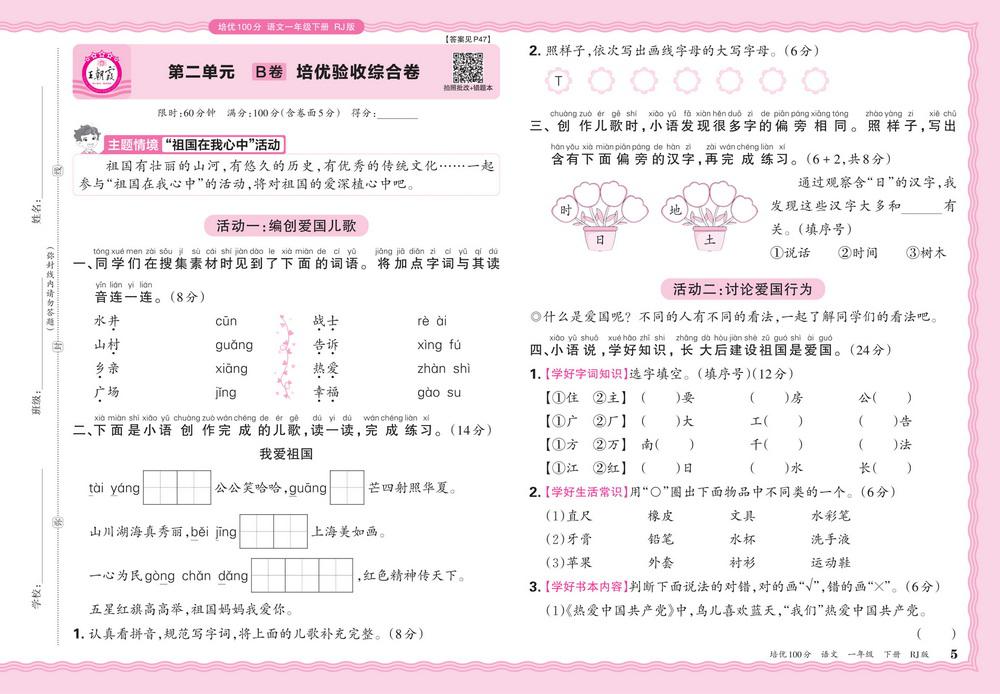 培优100分 语文一年级下册 RJ版
【答案见P47】
王朝霞
第二单元 B卷 培优验收综合卷
拍照批改+错题本
限时:60分钟 满分:100分(含卷面5分) 得分:
主题情境 “祖国在我心中”活动
祖国有壮丽的山河,有悠久的历史,有优秀的传统文化……一起
参与“祖国在我心中”的活动,将对祖国的爱深植心中吧。
活动一:编创爱国儿歌
tóng xué men zài sōu jí sù cái shí jiàn dào le xià miàn de cí yǔ jiāng jiā diǎn zì cí yǔ qí dú
一、同学们在搜集素材时见到了下面的词语。将加点字词与其读
yīn lián yi lián
音连一连。(8分)
水井 cūn 战士 rè ài
山村 guǎng 告诉 xìng fú
乡亲 xiāng 热爱 zhàn shì
广场 jǐng 幸福 gào su
xià miàn shì xiǎo yǔ chuàng zuò wán chéng de ér gē dú yi dú wán chéng liàn xí
二、下面是小语创作完成的儿歌,读一读,完成练习。(14分)
我爱祖国
tài yáng 公公笑哈哈,guāng 芒四射照华夏。
山川湖海真秀丽,běi jīng 上海美如画。
一心为民gòng chǎn dǎng ,红色精神传天下。
五星红旗高高举,祖国妈妈我爱你。
1. 认真看拼音,规范写字词,将上面的儿歌补充完整。(8分)
姓名:
班级:
学校:
(弥封线内请勿答题)
线
封
密
2. 照样子,依次写出画线字母的大写字母。(6分)
T
chuàng zuò ér gē shí xiǎo yǔ fā xiàn hěn duō zì de piān páng xiāng tóng zhào yàng zi xiě chū
三、创作儿歌时,小语发现很多字的偏旁相同。照样子,写出
hán yǒu xià miàn piān páng de hàn zì zài wán chéng liàn xí
含有下面偏旁的汉字,再完成练习。(6+2,共8分)
时
日
地
土
通过观察含“日”的汉字,我
发现这些汉字大多和______有
关。(填序号)
①说话 ②时间 ③树木
活动二:讨论爱国行为
◎什么是爱国呢?不同的人有不同的看法,一起了解同学们的看法吧。
xiǎo yǔ shuō xué hǎo zhī shi zhǎng dà hòu jiàn shè zǔ guó shì ài guó
四、小语说,学好知识,长大后建设祖国是爱国。(24分)
1.【学好字词知识】选字填空。(填序号)(12分)
【①住 ②主】 ( )要 ( )房 公( )
【①广 ②厂】 ( )大 工( ) ( )告
【①方 ②万】 南( ) 千( ) ( )法
【①江 ②红】 ( )日 ( )水 长( )
2.【学好生活常识】用“○”圈出下面物品中不同类的一个。(6分)
(1)直尺 橡皮 文具 水彩笔
(2)牙膏 铅笔 水杯 洗手液
(3)苹果 外套 衬衫 运动鞋
3.【学好书本内容】判断下面说法的对错,对的画“√”,错的画“×”。(6分)
(1)《热爱中国共产党》中,鸟儿喜欢蓝天,“我们”热爱中国共产党。
( )
培优100分 语文 一年级 下册 RJ版 5